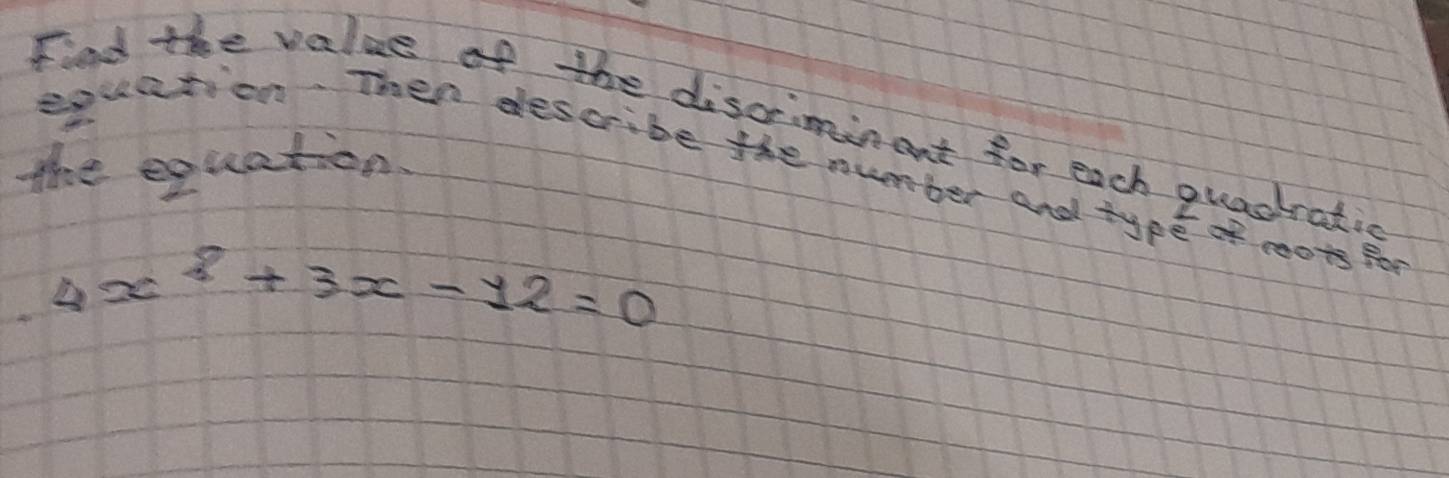 Find the value of the discriminant for each quadratic
equation. Then describe the number and type of roots for
the equation.
4x² + 3x - 12 = 0